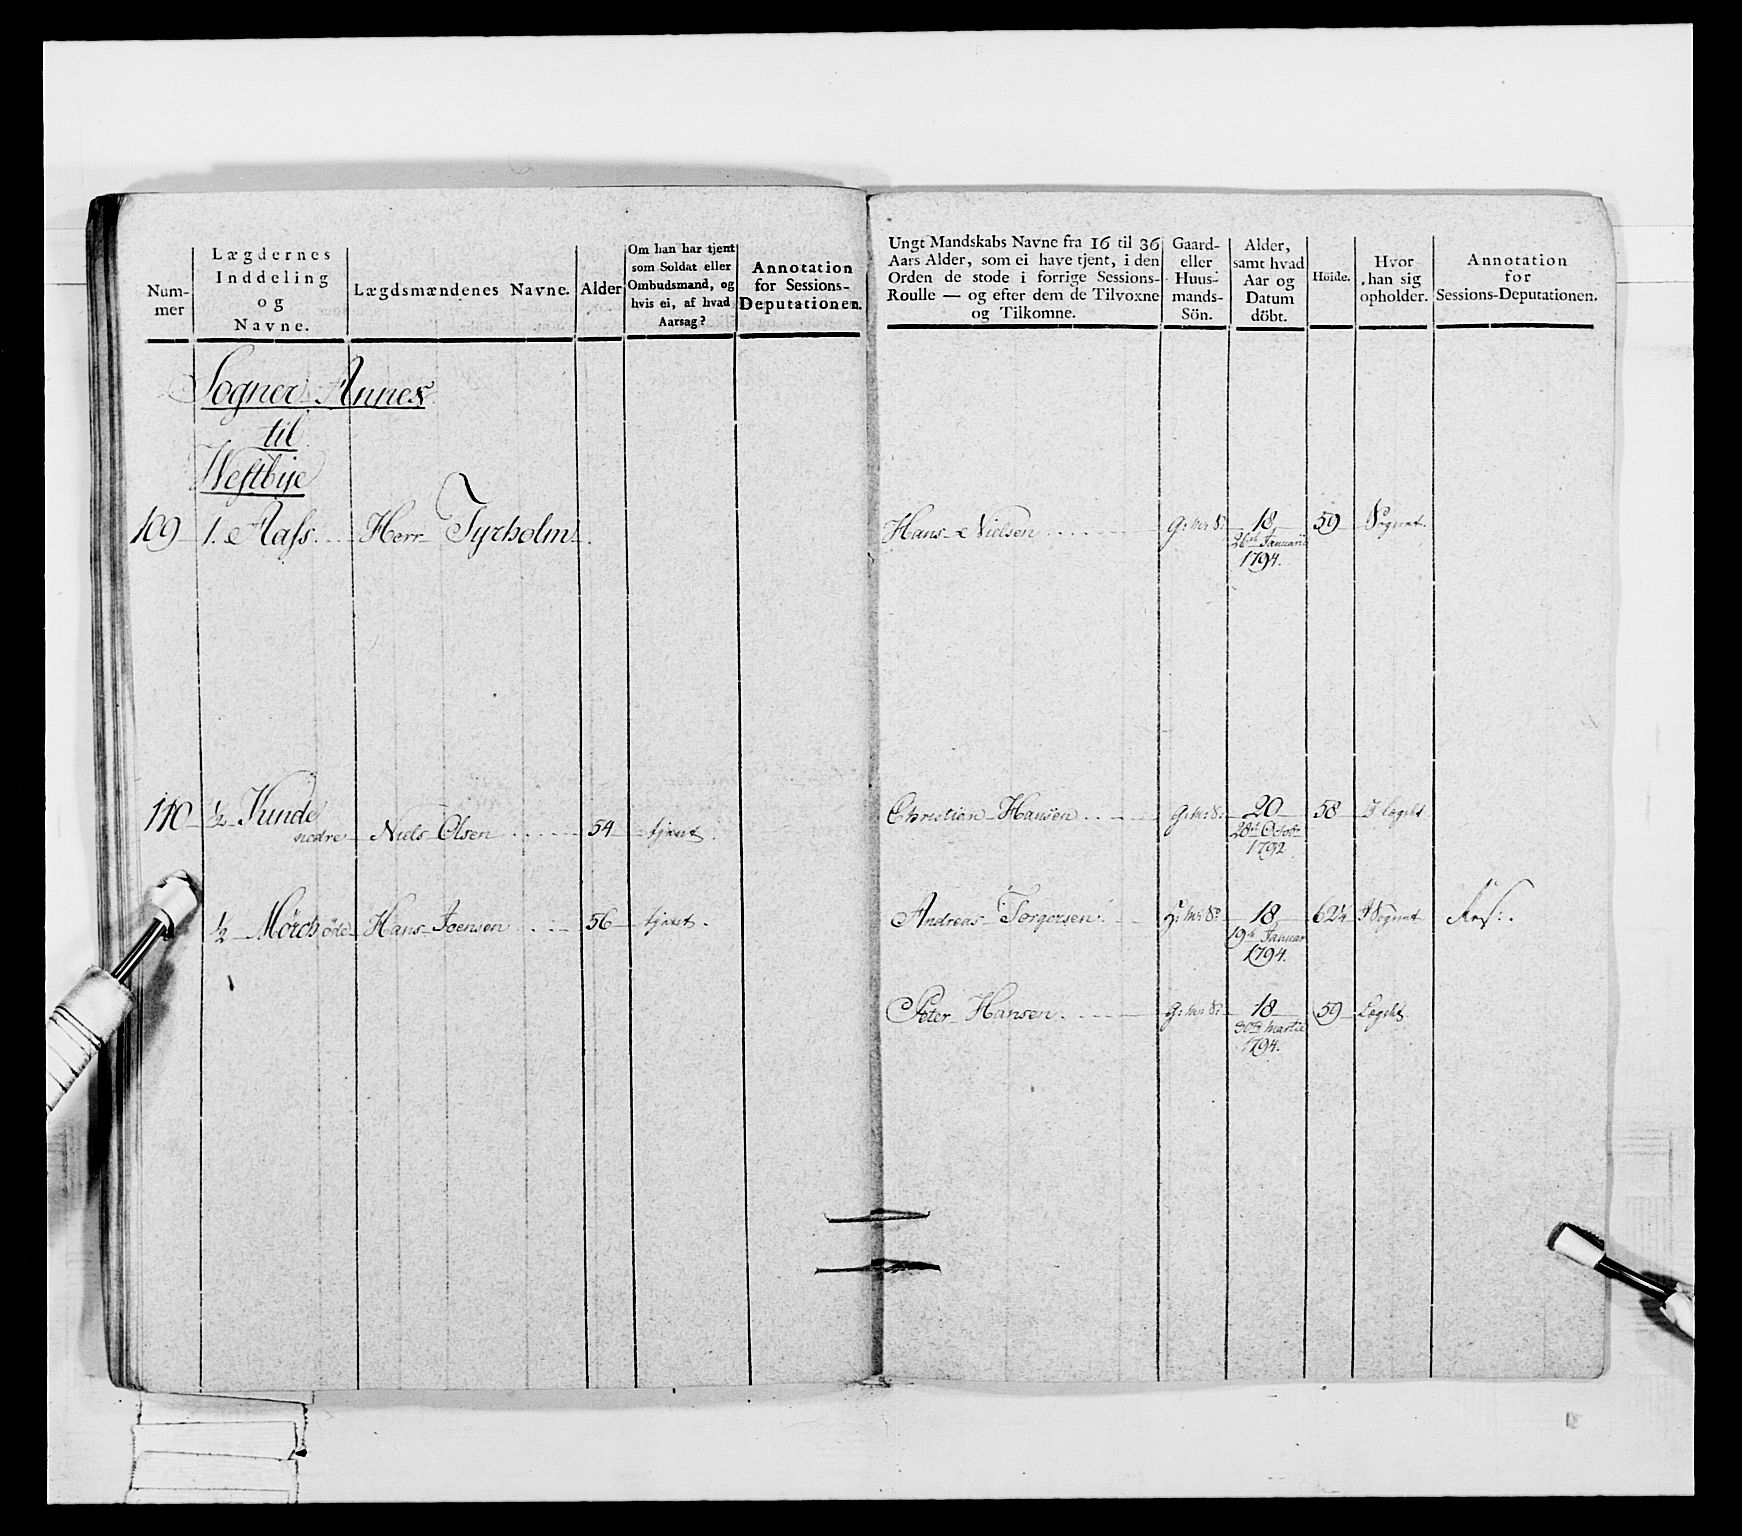 Num-
mer
Lægdernes
Inddeling
og
Navne.
Lægdsmændenes Navne.
Alder
Om han har tjent
som Soldat eller
Ombudsmand, og
hvis ei, af hvad
Aarsag?
Annotation
for Sessions-
Deputationen.
Sogner Annex
til
Westbye
109 1. Aass. Herr Tyrholm
110 ½ Kunde
nedre Niels Olsen 54 tjent.
½ Mörch öde Hans Joensen 56 tjent.
Ungt Mandskabs Navne fra 16 til 36
Aars Alder, som ei have tjent, i den
Orden de stode i forrige Sessions-
Roulle — og efter dem de Tilvoxne
og Tilkomne.
Gaard-
eller
Huus-
mands-
Sön.
Alder,
samt hvad
Aar og
Datum
döbt.
Höide.
Hvor
han sig
opholder.
Annotation
for
Sessions-Deputationen.
Hans Nielsen G: M: S: 18 59 Sognet
26de Januarii
1794.
Christian Hansen G: M: S: 20 58 I Legdet
28de Octobr
1792.
Andreas Torgersen H: M: S: 18 62¼ I Sognet
19de Januar
1794.
Peter Hansen G: M: S: 18 59 Legdet
30te Martii
1794.